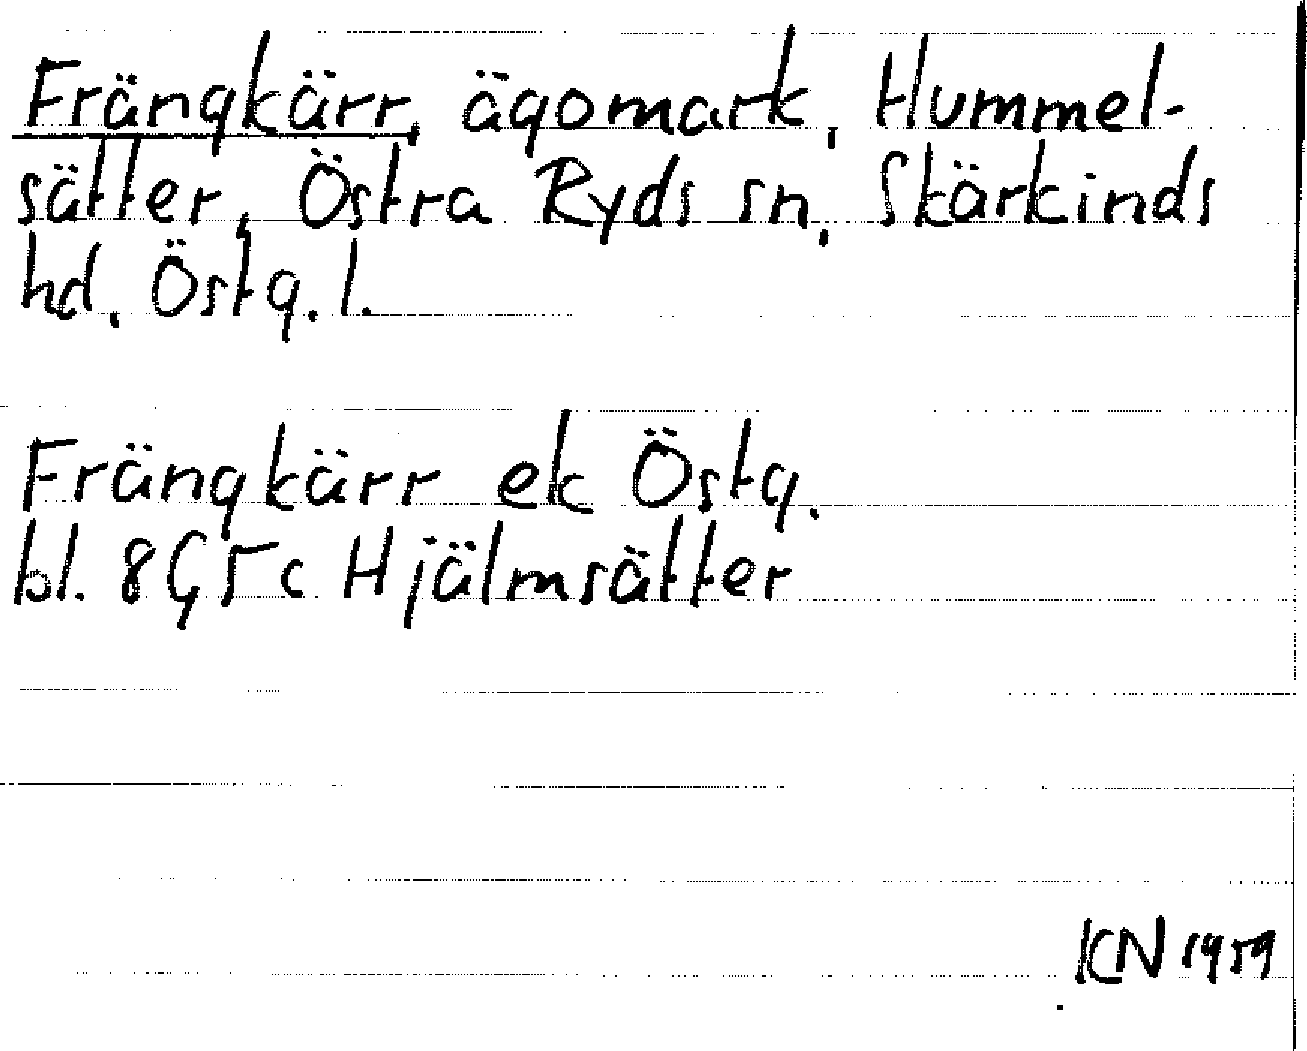 Frängkärr, ägomark, Hummel-
sätter, Östra Ryds sn, Skärkinds
hd. Östg. l.
Frängkärr ek Östg.
bl. 8G5c Hjälmsätter
KN 1959